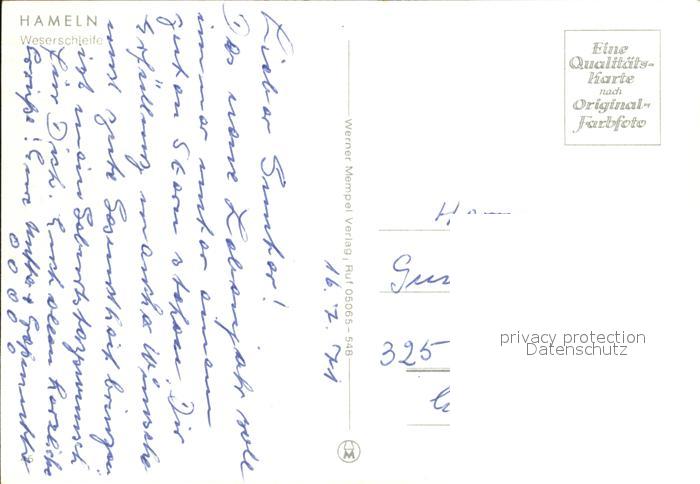 HAMELN
Weserschleife
Lieber Gunter!
Das neue Lebensjahr soll
immer unter einem
guten Stern stehen. Dir
Erfüllung mancher Wünsche
und gute Gesundheit bringen
ist mein Geburtstagswunsch
für Dich. Euch allen herzliche
Grüße! Eure
Werner Mempel Verlag, Ruf 05065-548
Eine
Qualitäts-
Karte
nach
Original-
Farbfoto
325
privacy protection
Datenschutz